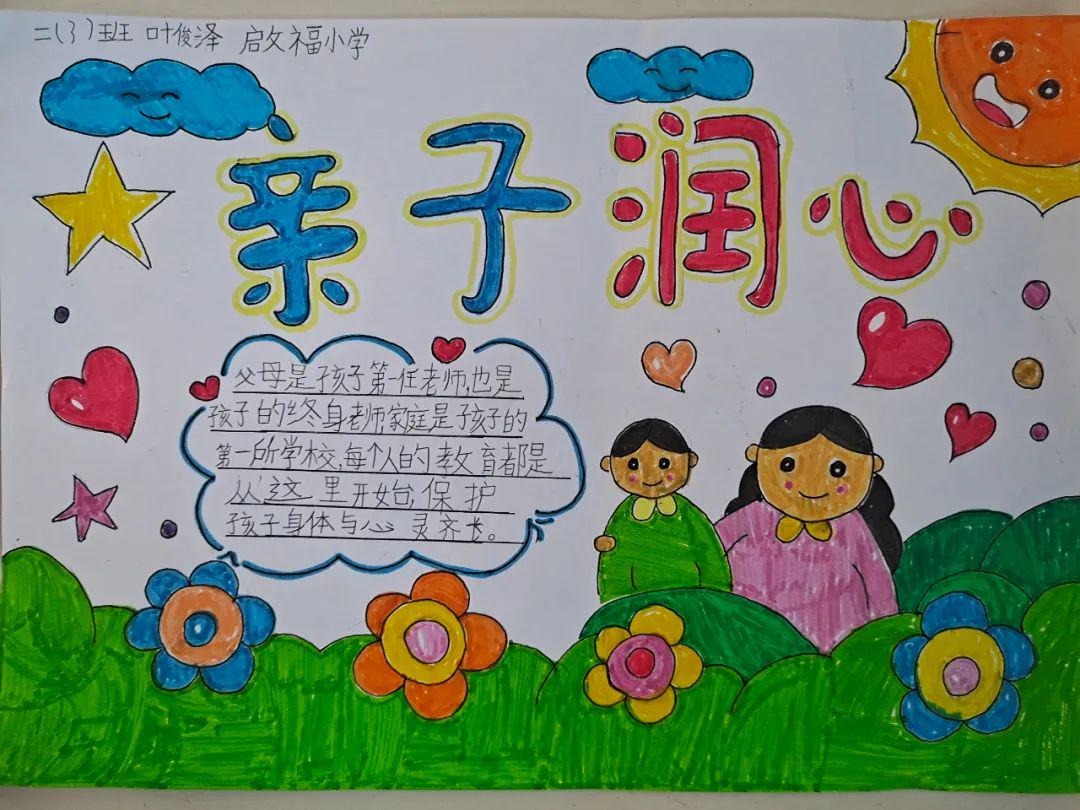 二(3)班 叶俊泽 启文福小学
亲子润心
父母是孩子第一任老师,也是
孩子的终身老师家庭是孩子的
第一所学校,每个人的教育都是
从这里开始,保护
孩子身体与心灵齐长。